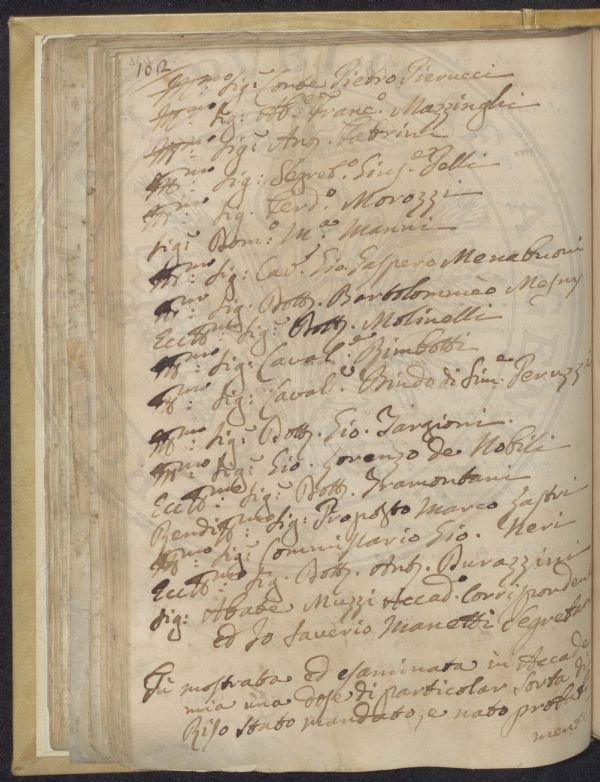 102
Ill.mo Sig.r Conte Pietro Pierucci
Ill.mo Sig: Ab.e Franc.o Mazzinghi
Ill.mo Sig.r Ant.
Ill.mo Sig: Segret.o Gius.e Pelli
Ill.mo Sig. Ferd.o Morozzi
Sig.r Dom.o M.a Manni
Ill.mo Sig: Cav.r Gio. Gaspero Menabuoni
Ill.mo Sig. Dott. Bartolommeo Mesny
Ecc.mo Sig.r Dott. Molinelli
Ill.mo Sig: Caval.e Bimbotti
Ill.mo Sig: Caval.r Bindo di Sim.e Peruzzi
Ill.mo Sig.r Dott. Gio. Targioni.
Ill.mo Sig.r Gio. Lorenzo de Nobili
Ecc.mo Sig: Dott. Tramontani
Sig: Proposto Marco Lastri
Ill.mo Sig: Commissario Gio. Neri
Ecc.mo Sig. Dott. Ant. Durazzini
Sig: Abate Muzzi Accad.o Corrispondent
Ed Io Saverio Manetti Segretar
Fù mostrata ed esaminata in Accade
mia una dose di particolar Sorta di
Riso stato mandato, e nato
mente